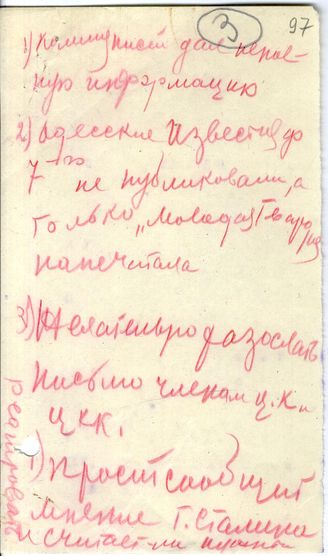 3
97
1) Коммунист дал непол-
ную информацию
2) Одесские Известия до
7го не публиковали, а
только „Молодая Гвардия
напечатала
3) Желательно разослать
письмо членам Ц.К и
ЦКК.
1) просит сообщит
мнение Т. Сталина
и считает ли нужным
реагировать